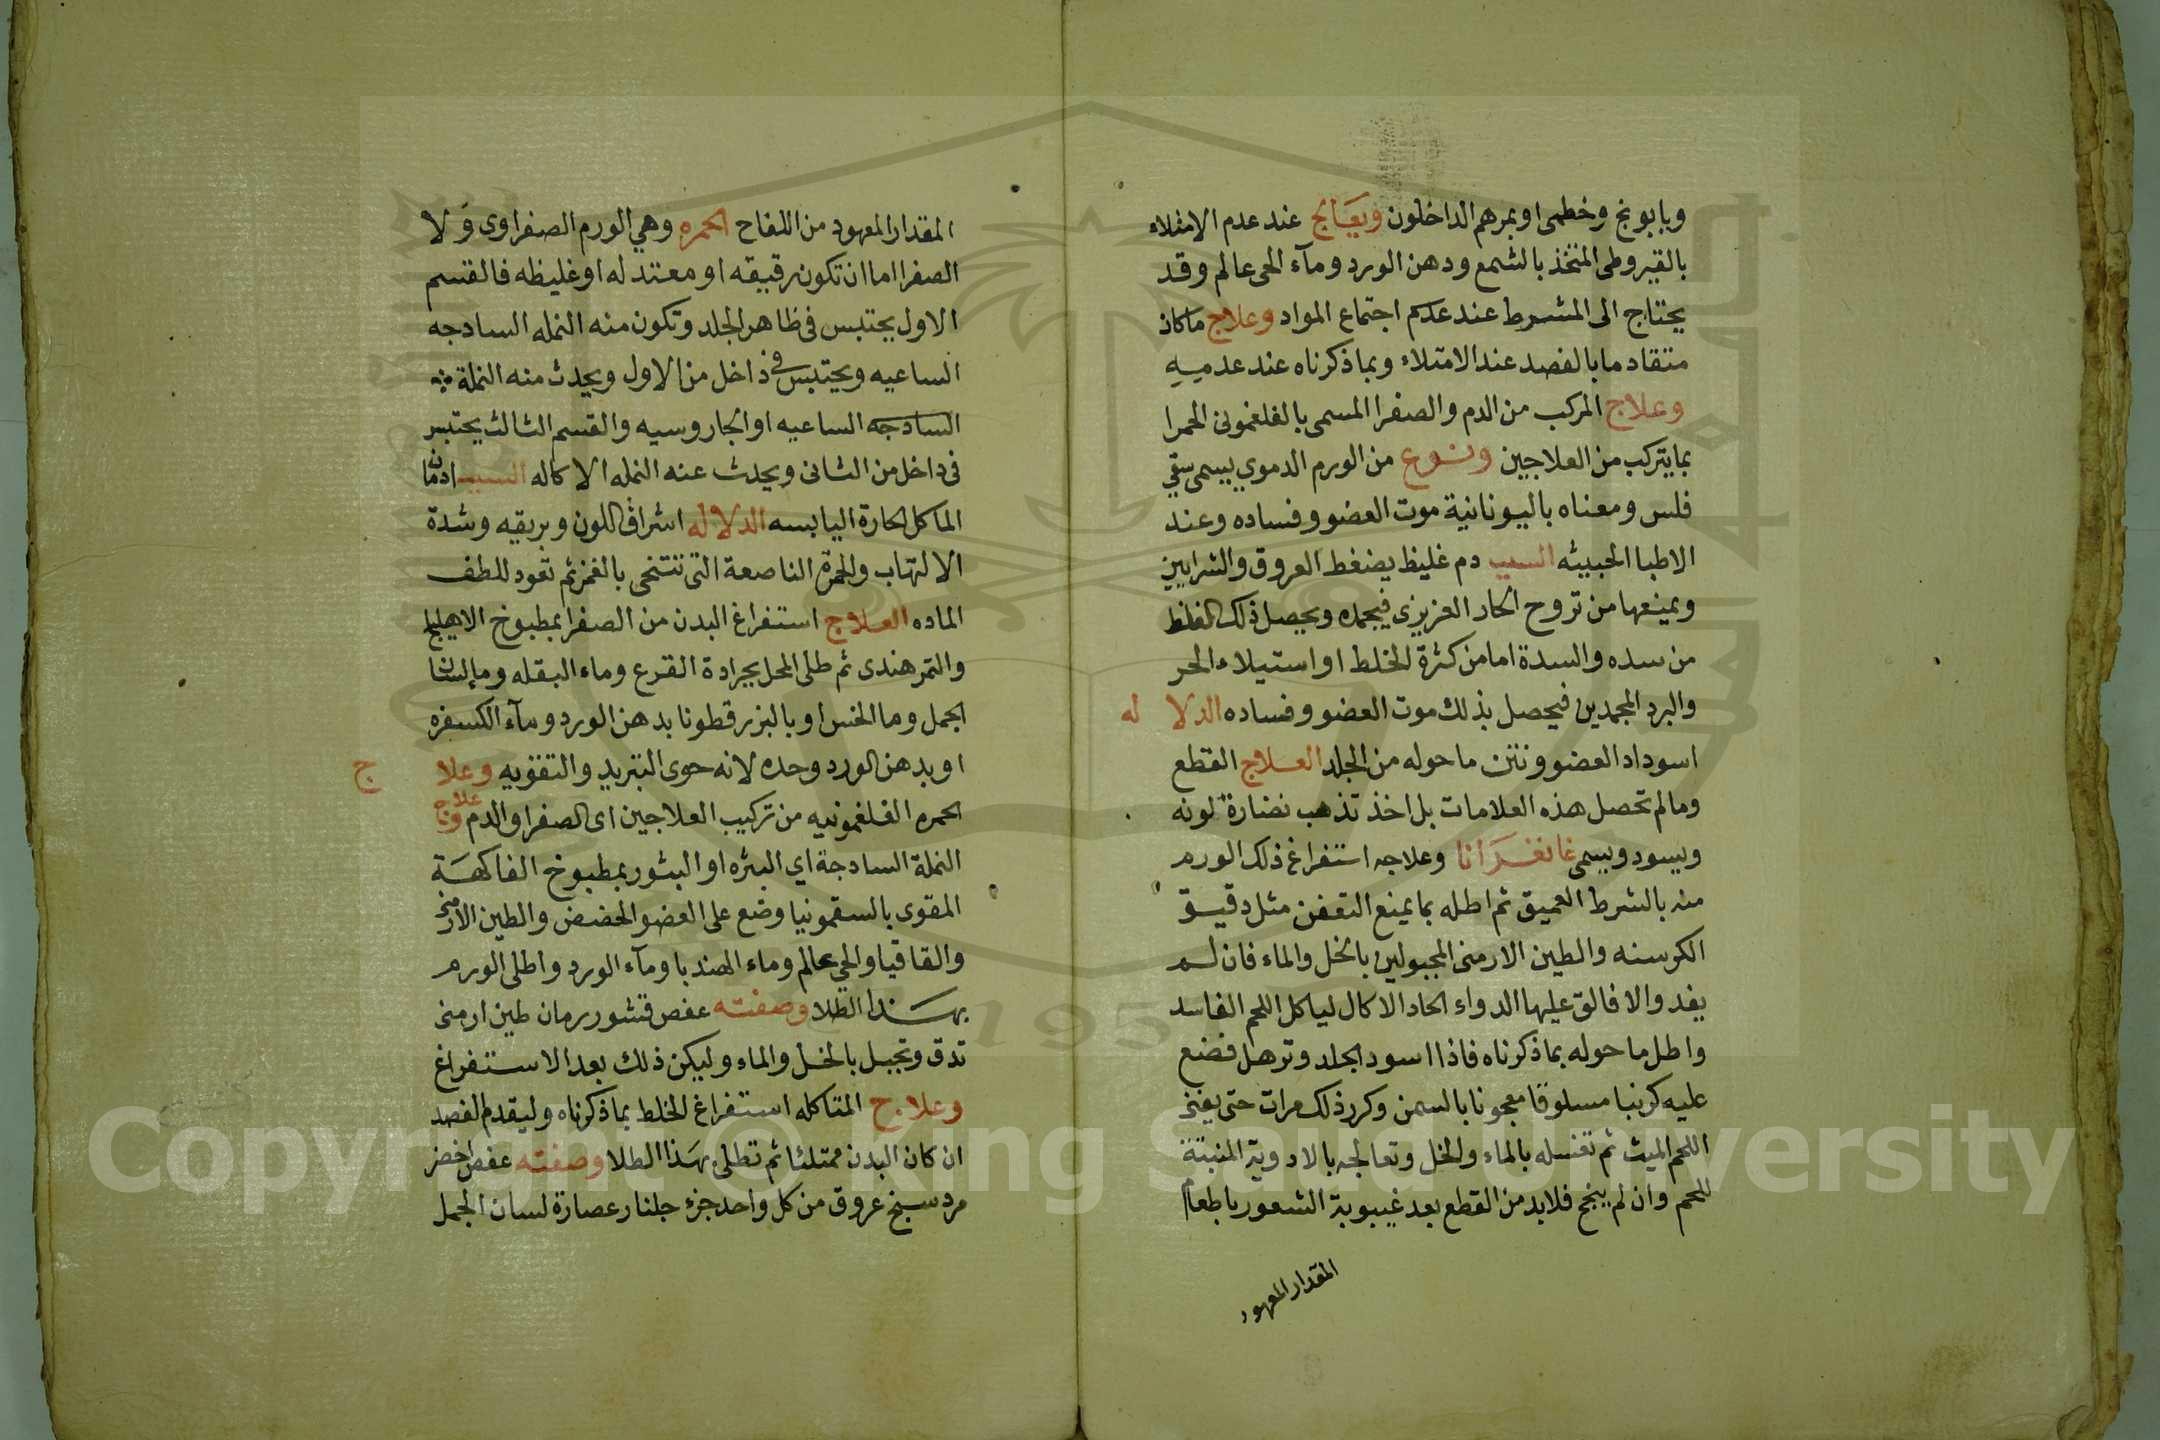 وبابونج وخطمى او بمرهم الداخلون ويعالج عند عدم الامتلاء
بالقيروطى المتخذ بالشمع ودهن الورد ومآء الحى عالم وقد
يحتاج الى المشرط عند عدم اجتماع المواد وعلاج ماكان
متقادما بالفصد عند الامتلاء وبما ذكرناه عند عدميه
وعلاج المركب من الدم والصفرا المسمى بالفلغمونى الحمرا
بما يتركب من العلاجين ونوع من الورم الدموي يسمى سقي
فلس ومعناه باليونانية موت العضو وفساده وعند
الاطبا الخبيثه السبب دم غليظ يضغط العروق والشرايين
ويمنعها من تروح الحار الغريزى فيجمده ويحصل ذلك الغلظ
من سده والسدة اما من كثرة الخلط او استيلاء الحر
والبرد المجمدين فيحصل بذلك موت العضو وفساده الدلا له
اسوداد العضو ونتن ما حوله من الجلد العلاج القطع
ومالم تحصل هذه العلامات بل اخذ تذهب نضارة لونه
ويسود ويسمى غانغرانا وعلاجه استفراغ ذلك الورم
منه بالشرط العميق ثم اطله بما يمنع التعفن مثل دقيق
الكرسنه والطين الارمنى المجبولين بالخل والماء فان لم
يفد والا فالق عليها الدواء الحاد الاكال لياكل اللحم الفاسد
واطل ما حوله بما ذكرناه فاذا اسود الجلد وترهل فضع
عليه كرنبا مسلوقا معجونا بالسمن وكرر ذلك مرات حتى
اللحم الميت ثم تغسله بالماء والخل وتعالجه بالادوية المنبتة
للحم وان لم ينجح فلابد من القطع بعد غيبوبة الشعور باطعام
المقدار المعهود
المقدار المعهود من اللفاح الحمره وهي الورم الصفراوى ولا
الصفرا اما ان تكون رقيقه او معتدله او غليظه فالقسم
الاول يحتبس فى ظاهر الجلد وتكون منه النمله السادجه
الساعيه ويحتبس في داخل من الاول ويحدث منه النملة
السادجه الساعيه او الجاروسيه والقسم الثالث يحتبس
فى داخل من الثانى ويحدث عنه النمله الاكاله السبب ادمان
الماكل الحارة اليابسه الدلاله اشراق اللون وبريقه وشدة
الالتهاب والحمرة الناصعة التى تنتحى بالغمز ثم تعود للطف
الماده العلاج استفراغ البدن من الصفرا بمطبوخ الاهليلج
والتمر هندى ثم طلى المحل بجرادة القرع وماء البقله وما لسان
الجمل وما الخس او بالبزر قطونا بدهن الورد ومآء الكسفره
او بدهن الورد وحده لانه حوى التبريد والتقويه وعلا ج
الحمره الفلغمونيه من تركيب العلاجين اى الصفرا والدم علاج
النملة السادجة اي البثره او البثور بمطبوخ الفاكهة
المقوى بالسقمونيا وضع على العضو الحضض والطين الارمنى
والقاقيا والحي عالم وماء الهندبا ومآء الورد واطلى الورم
بهذا الطلا وصفته عفص قشور رمان طين ارمنى
تدق وتجبل بالخل والماء وليكن ذلك بعد الاستفراغ
وعلاج المتاكله استفراغ الخلط بما ذكرناه وليقدم الفصد
ان كان البدن ممتلئا ثم تطلى بهذا الطلا وصفته عفص اخضر
مردسنج عروق من كل واحد جزء جلنار عصارة لسان الجمل
Copyright © King Saud University
195